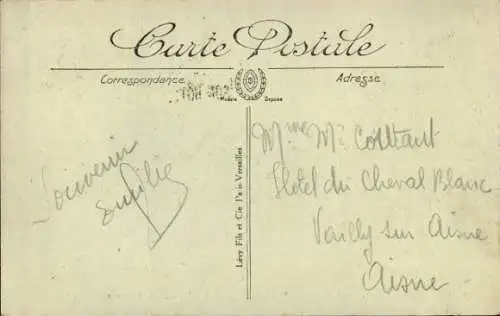 Carte Postale
Correspondance
Adresse
Modèle Déposé
Souvenir
Emilie
Lévy Fils et Cie Paris-Versailles
Mme Mi
Hotel du Cheval Blanc
Vailly sur Aisne
Aisne